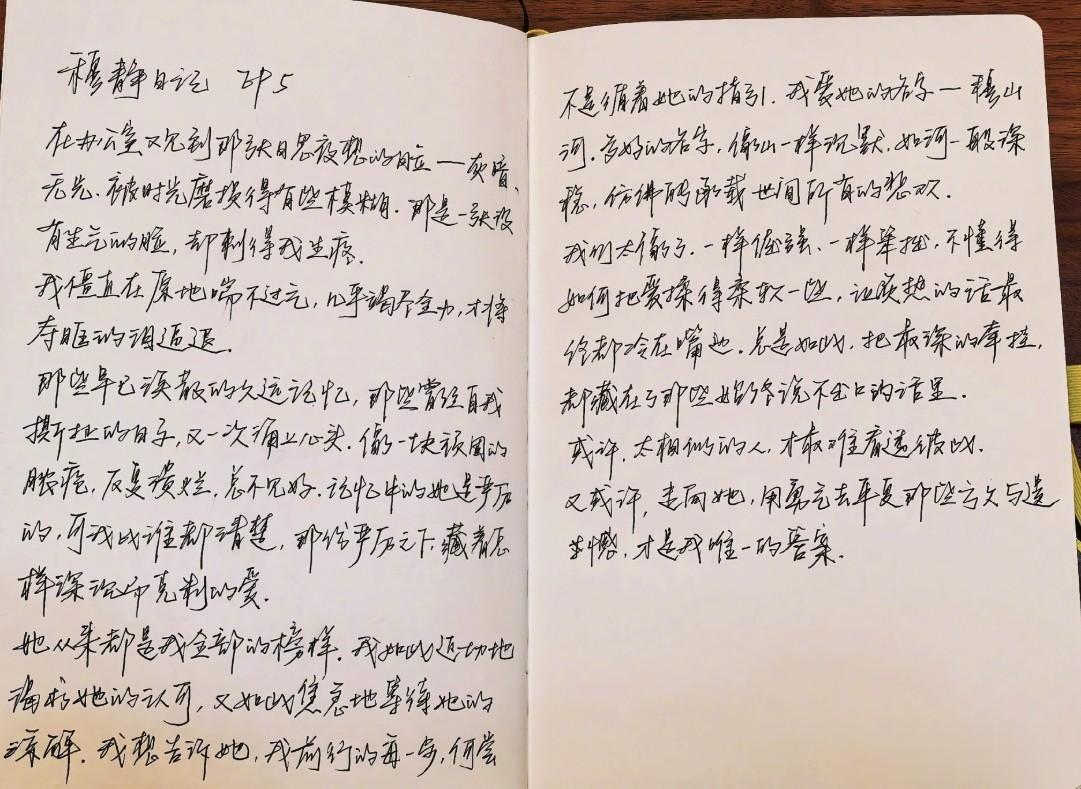 穆静日记 EP5
在办公室又见到那张日思夜想的脸——灰暗、
无光、被时光磨损得有些模糊。那是一张没
有生气的脸,却刺得我生疼。
我僵直在原地喘不过气,几乎竭尽全力,才将
夺眶的泪逼退。
那些早已涣散的久远记忆,那些曾经自我
撕扯的日子,又一次涌上心头。像一块顽固的
脓疮,反复溃烂,总不见好。记忆中的她是严厉
的,可我比谁都清楚,那份严厉之下,藏着怎
样深沉而克制的爱。
她从来都是我全部的榜样。我如此迫切地
渴求她的认可,又如此焦急地等待她的
谅解。我想告诉她,我前行的每一步,何尝
不是循着她的指引。我爱她的名字——穆山
河。多好的名字,像山一样沉默,如河一般深
稳,仿佛能承载世间所有的悲欢。
我们太像了。一样倔强、一样笨拙,不懂得
如何把爱揉得柔软一些,让炽热的话最
终都冷在嘴边。总是如此,把最深的牵挂,
都藏在了那些始终说不出口的话里。
或许,太相似的人,才最难看透彼此。
又或许,走向她,用勇气去平复那些亏欠与遗
憾,才是我唯一的答案。